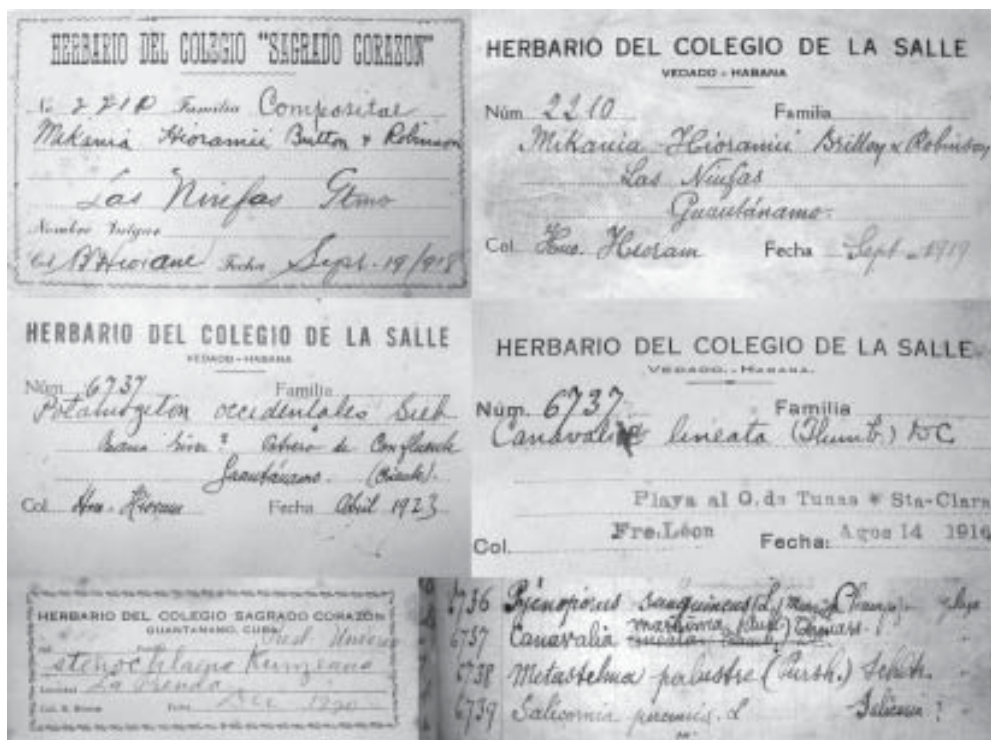 HERBARIO DEL COLEGIO "SAGRADO CORAZON"
No 2210 Familia Compositae
Mikania Hioramii Britton & Robinson
Las Ninfas Gtmo
Nombre Vulgar
Col Fecha Sept. 19/918
HERBARIO DEL COLEGIO DE LA SALLE
VEDADO - HABANA
Núm 2210 Familia
Mikania Hioramii Britton & Robinson
Las Ninfas
Guantánamo.
Col. Hno. Hioram Fecha Sept - 1919
HERBARIO DEL COLEGIO DE LA SALLE
VEDADO - HABANA
Núm 6737 Familia
Potamogeton occidentales Sieb
Potrero de Confluente
Guantánamo. (Oriente).
Col. Hno. Hioram Fecha Abril 1923
HERBARIO DEL COLEGIO DE LA SALLE
VEDADO - HABANA.
Núm. 6737 Familia
Canavalia lineata (Thumb.) DC
Playa al O. de Tunas * Sta-Clara
Col. Fre. Léon Fecha: Agos 14 1916
HERBARIO DEL COLEGIO SAGRADO CORAZON
GUANTANAMO, CUBA
Stenochlaena Kunzeana
La Prenda
Fecha Dic 1920
6736 sanguineus (L.
6737 Canavalia maritima Thouars.
6738 Metastelma palustre (Pursh.) Schlt.
6739 Salicornia perennis. L